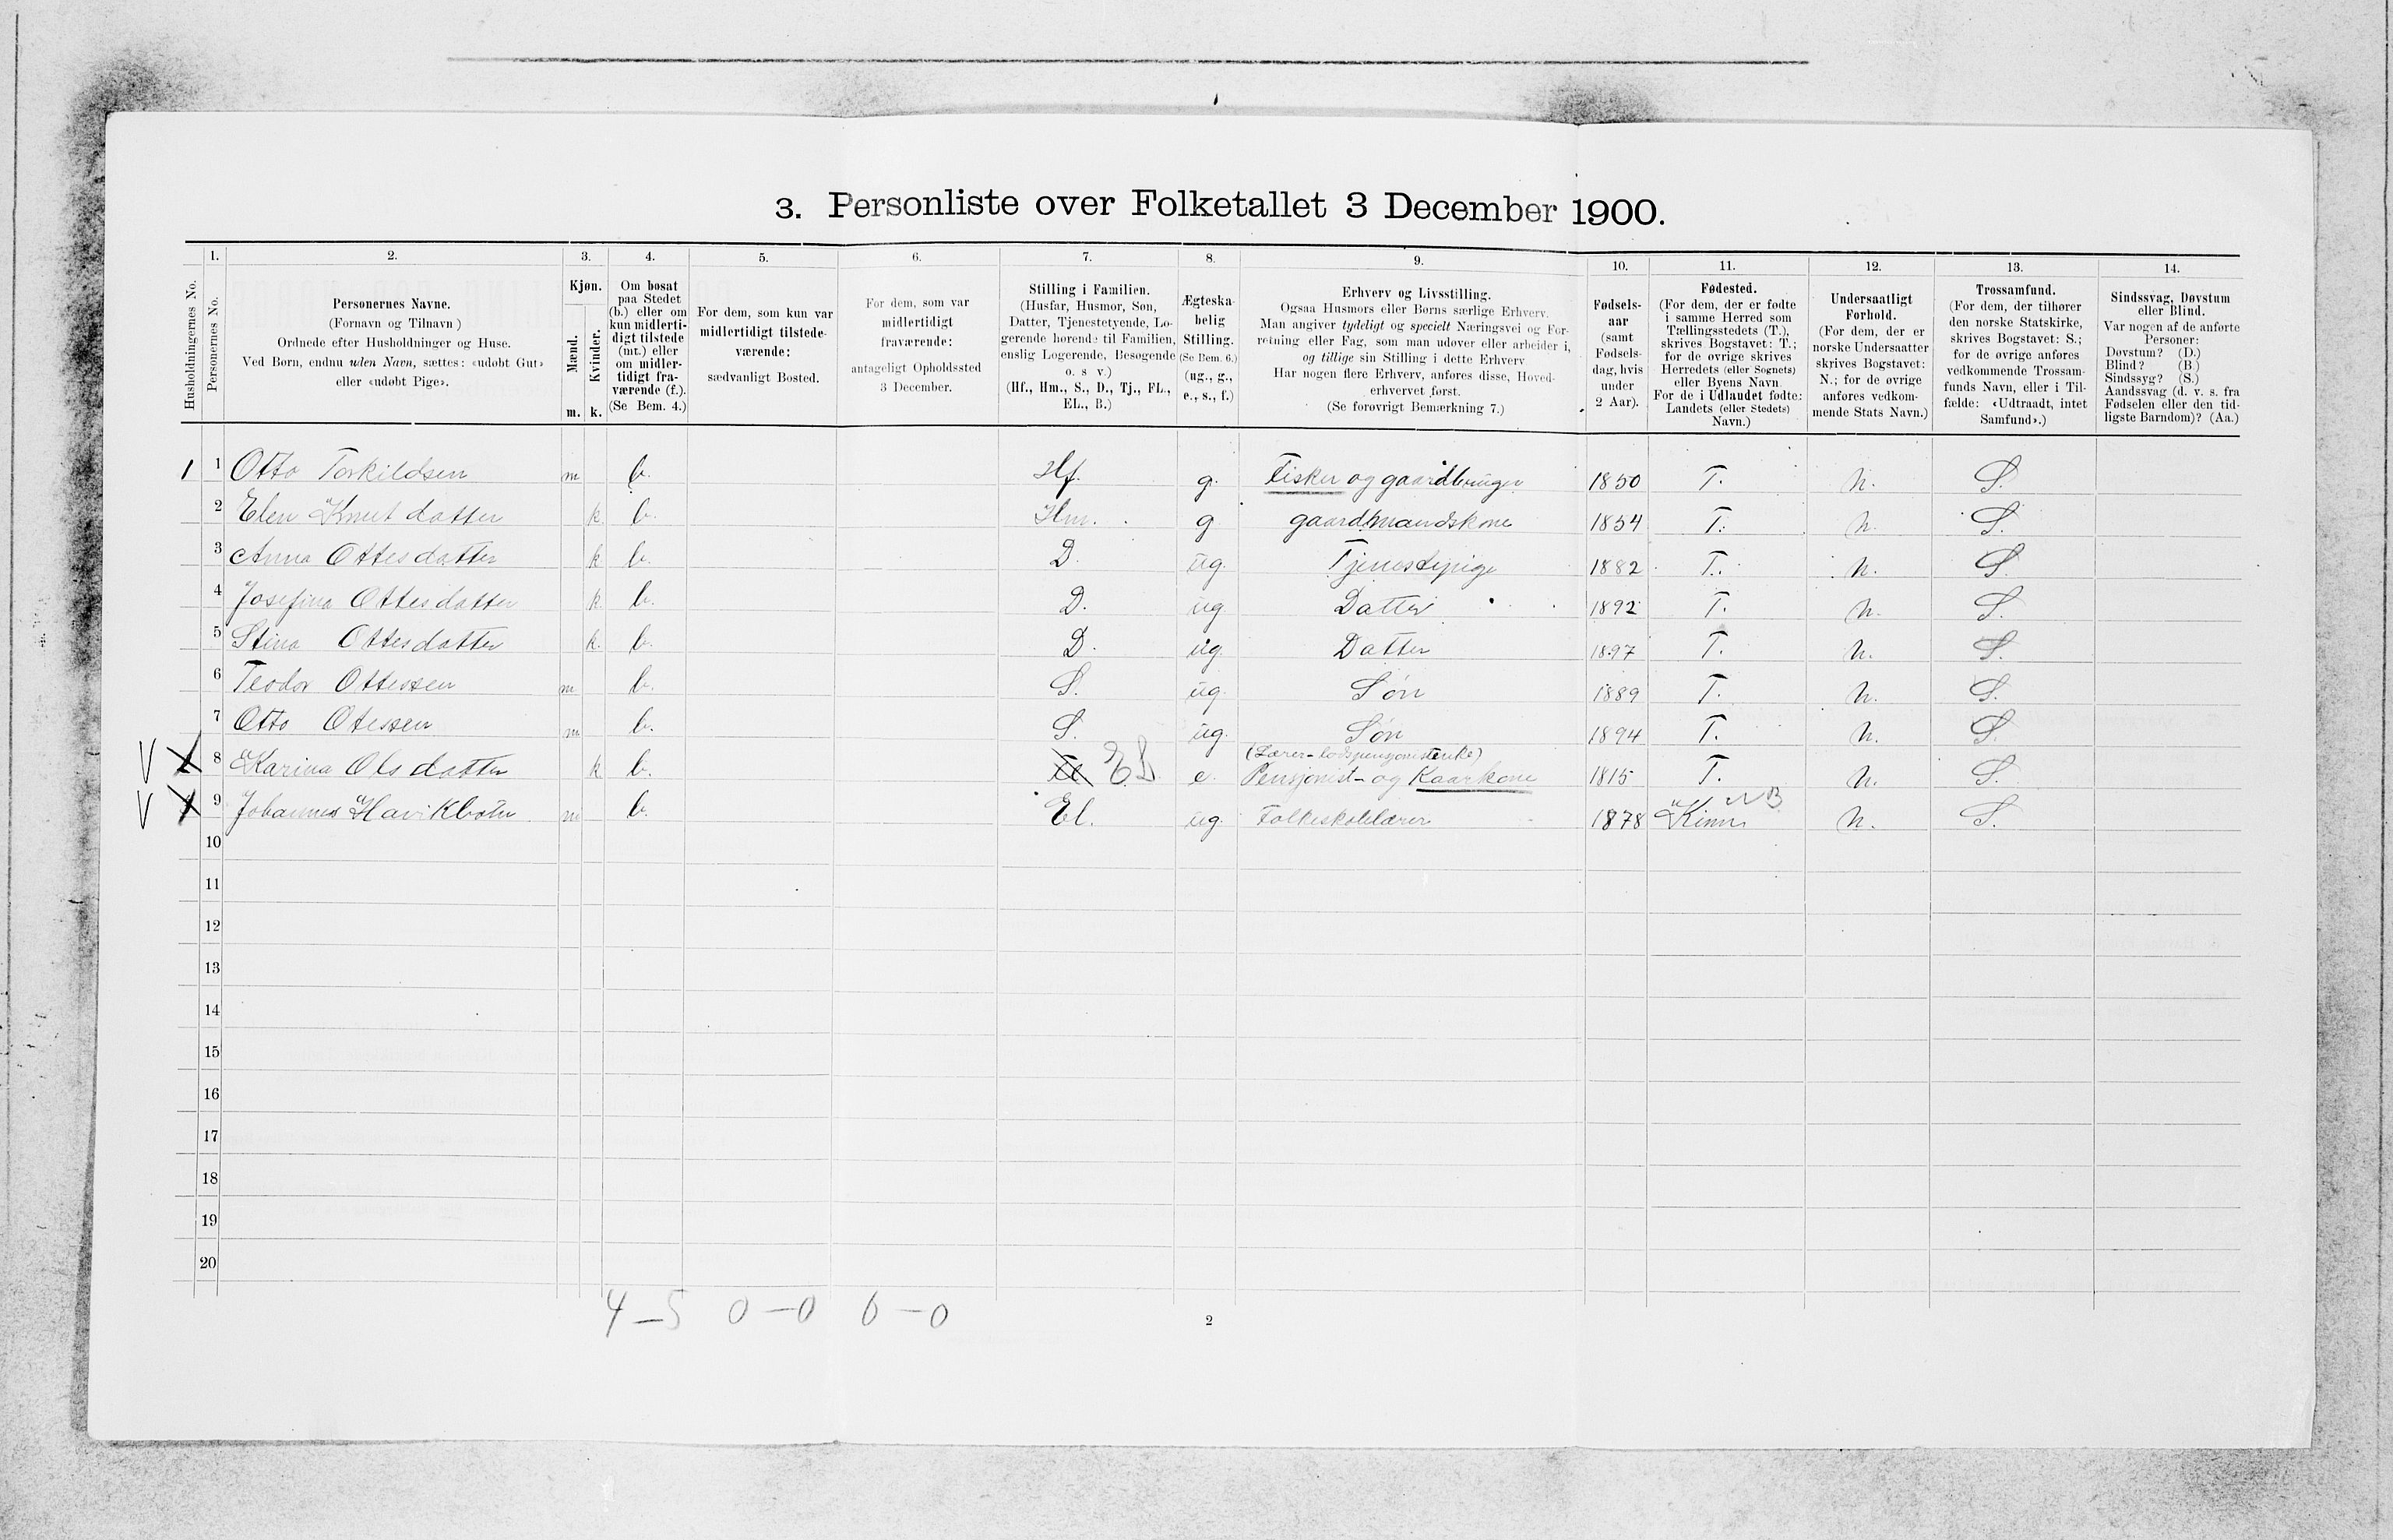 3. Personliste over Folketallet 3 December 1900.
1. 2. 3. 4. 5. 6. 7. 8. 9. 10. 11. 12. 13. 14.
Husholdningernes No.
Personernes No.
Personernes Navne.
(Fornavn og Tilnavn )
Ordnede efter Husholdninger og Huse.
Ved Børn, endnu uden Navn, sættes: «udøbt Gut»
eller «udøbt Pige».
Kjøn.
Mænd.
Kvinder.
m. k.
Om bosat
paa Stedet
(b.) eller om
kun midlerti-
digt tilstede
(mt.) eller
om midler-
tidigt fra-
værende (f.).
(Se Bem. 4.)
For dem, som kun var
midlertidigt tilstede-
værende:
sædvanligt Bosted.
For dem, som var
midlertidigt
fraværende:
antageligt Opholdssted
3 December.
Stilling i Familien.
(Husfar, Husmor, Søn,
Datter, Tjenestetyende, Lo-
gerende hørende til Familien,
enslig Logerende, Besøgende
o. s v.)
(Hf., Hm., S., D., Tj., FL.,
EL., B.)
Ægteska-
belig
Stilling.
(Se Bem. 6.)
(ug., g.,
e., s., f.)
Erhverv og Livsstilling.
Ogsaa Husmors eller Børns særlige Erhverv.
Man angiver tydeligt og specielt Næringsvei og For-
retning eller Fag, som man udøver eller arbeider i,
og tillige sin Stilling i dette Erhverv
Har nogen flere Erhverv, anføres disse, Hoved-
erhvervet først.
(Se forøvrigt Bemærkning 7.)
Fødsels-
aar
(samt
Fødsels-
dag, hvis
under
2 Aar).
Fødested.
(For dem, der er fødte
i samme Herred som
Tællingsstedets (T.),
skrives Bogstavet: T.;
for de øvrige skrives
Herredets (eller Sognets)
eller Byens Navn.
For de i Udlandet fødte:
Landets (eller Stedets)
Navn.)
Undersaatligt
Forhold.
(For dem, der er
norske Undersaatter
skrives Bogstavet:
N.; for de øvrige
anføres vedkom-
mende Stats Navn.)
Trossamfund.
(For dem, der tilhører
den norske Statskirke,
skrives Bogstavet: S.;
for de øvrige anføres
vedkommende Trossam-
funds Navn, eller i Til-
fælde: «Udtraadt, intet
Samfund».)
Sindssvag, Døvstum
eller Blind.
Var nogen af de anførte
Personer:
Døvstum? (D.)
Blind? (B.)
Sindssyg? (S.)
Aandssvag (d. v. s. fra
Fødselen eller den tid-
ligste Barndom)? (Aa.)
1 1 Otto Torkildsen m b. Hf. g. Fisker og gaardbruger 1850 T. N. S.
2 Elen Knutdatter k b. Hm. g gaardmandskone 1854 T. N. S.
3 Anna Ottesdatter k b. D. ug. Tjenestepige 1882 T. N. S.
4 Josefina Ottesdatter k b. D. ug. Datter 1892 T. N. S.
5 Stina Ottesdatter k. b. D. ug. Datter 1897 T. N. S.
6 Teodor Ottessen m b. S. ug. Søn 1889 T. N. S.
7 Otto Otessen m b. S. ug. Søn 1894 T. N. S.
V 1 8 Karina Olsdatter k b. EL e. Pensjonist- og Kaarkone 1815 T. N. S.
V 1 9 Johannes m b. El. ug. Folkeskolelærer 1878 Kinn NB N. S.
10
11
12
13
14
15
16
17
18
19
20
4 – 5 0 – 0 0 – 0
2